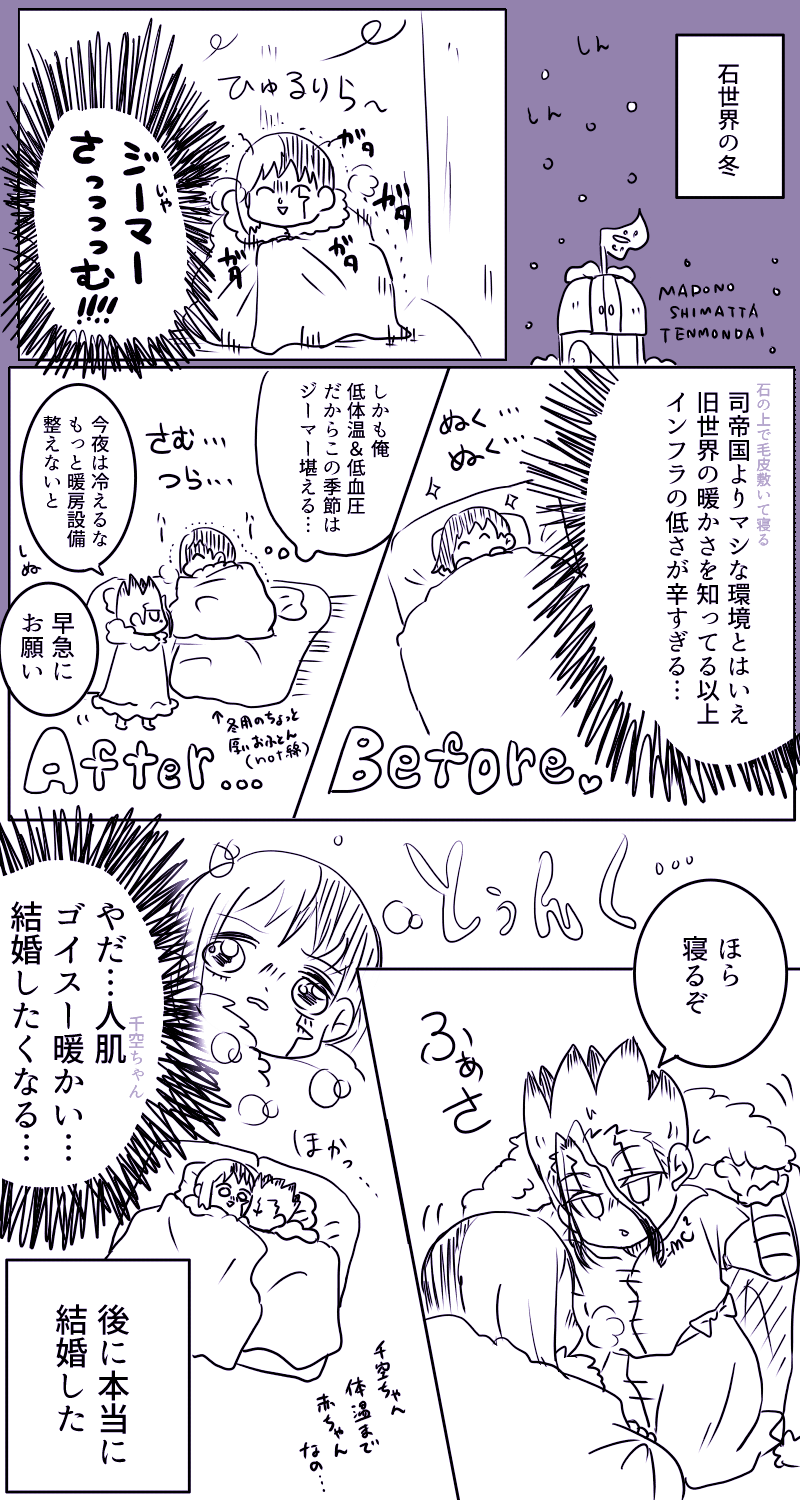 石世界の冬
しん
しん
MADONO
SHIMATTA
TENMONDAI
ひゅるりら〜
ガタ
ガタ
ガタ
ガタ
いや
ジーマー
さっっっっむ!!!!
石の上で毛皮敷いて寝る
司帝国よりマシな環境とはいえ
旧世界の暖かさを知ってる以上
インフラの低さが辛すぎる…
ぬく…
ぬく…
Before
しかも俺
低体温&低血圧
だからこの季節は
ジーマー堪える…
さむ…
つら…
今夜は冷えるな
もっと暖房設備
整えないと
しぬ
早急に
お願い
↑冬用のちょっと
厚いおふとん
(not綿)
After...
とぅんく…
ほら
寝るぞ
ふぁさ
mc²
千空ちゃん
やだ…人肌
ゴイスー暖かい…
結婚したくなる…
ほかっ…
千空ちゃん
体温まで
赤ちゃん
なの…
後に本当に
結婚した